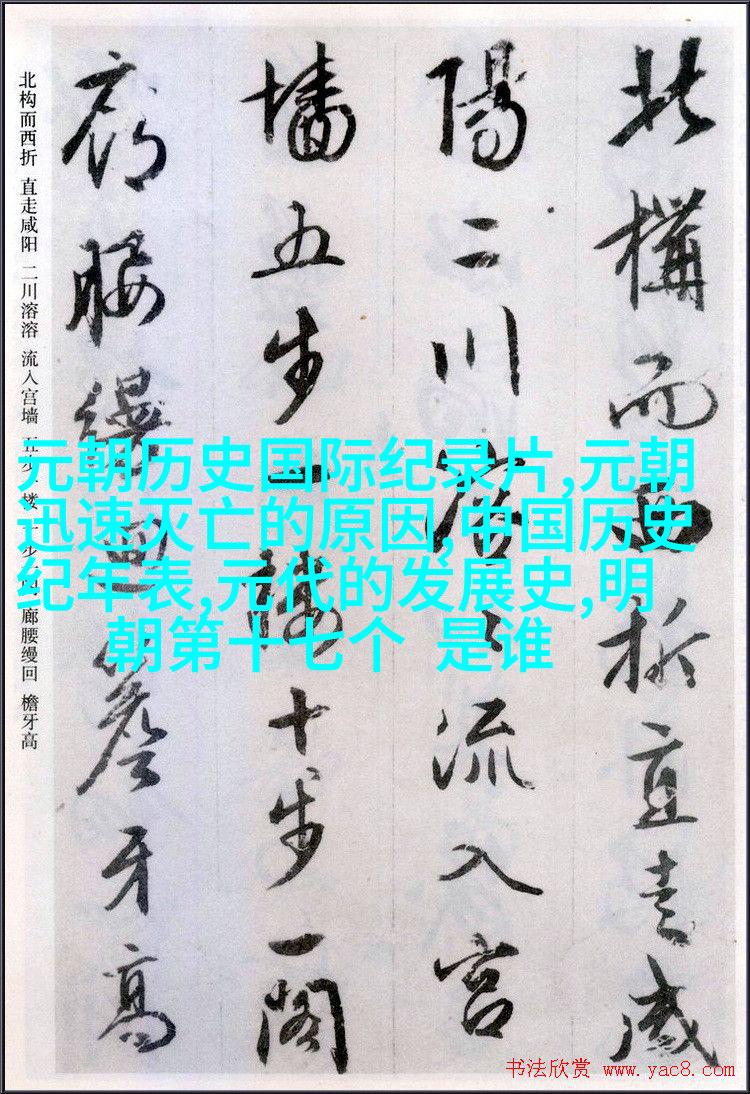 北構而西折直走咸
陽二川溶溶流入宫
墙五步一樓十步一閣
廊腰縵迴簷牙高
北构而西折 直走咸阳 二川溶溶 流入宫墙 五步一楼 十步一阁 廊腰缦回 檐牙高
元朝历史国际纪录片,元朝
迅速灭亡的原因,中国历史
纪年表,元代的发展史,明
朝第十七个 是谁
书法欣赏 www.yac8.com